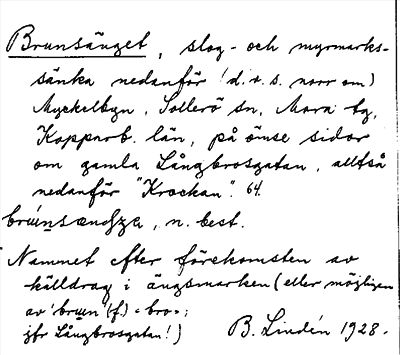 Brunsänget, slog- och myrmarks-
sänka nedanför (d.v.s. norr om)
Myckelbyn, Sollerö sn, Mora tg,
Kopparb. län, på ömse sidor
om gamla Långbrosgatan, alltså
nedanför "Krockan". 64.
n. best.
Namnet efter förekomsten av
källdrag i ängsmarken (eller möjligen
av 'brun' (f.) "bro";
jfr Långbrosgatan!) B. Lindén 1928.